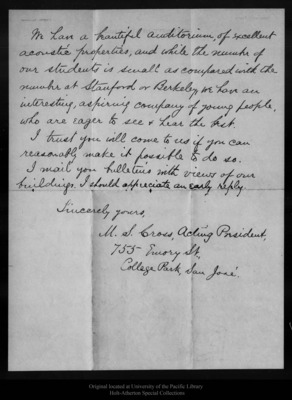 We have a beautiful auditorium, of excellent
acoustic properties, and while the number of
our students is small as compared with the
number at Stanford or Berkeley we have an
interesting, aspiring company of young people,
who are eager to see & hear the best.
I trust you will come to us if you can
reasonably make it possible to do so.
I mail you bulletins with views of our
buildings. I should appreciate an early reply.
Sincerely yours,
M. S. Cross, Acting President,
755 Emory St,
College Park, San José.
Original located at University of the Pacific Library
Holt-Atherton Special Collections